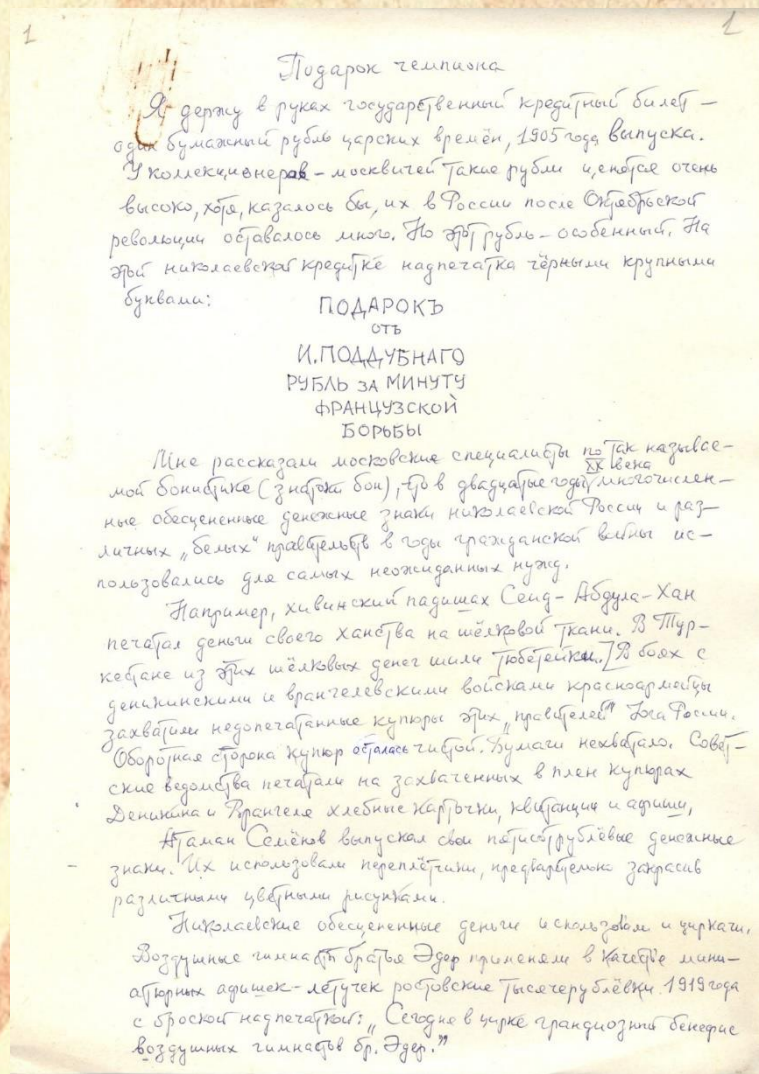 1
1
Подарок чемпиона
Я держу в руках государственный кредитный билет –
один бумажный рубль царских времён, 1905 года выпуска.
У коллекционеров – москвичей такие рубли ценятся очень
высоко, хотя, казалось бы, их в России после Октябрьской
революции оставалось много. Но этот рубль – особенный. На
этой николаевской кредитке надпечатка чёрными крупными
буквами:
ПОДАРОКЪ
отъ
И. ПОДДУБНАГО
РУБЛЬ ЗА МИНУТУ
ФРАНЦУЗСКОЙ
БОРЬБЫ
Мне рассказали московские специалисты по так называе-
мой бонистике (знатоки бон), что в двадцатые годы XX века многочислен-
ные обесцененные денежные знаки николаевской России и раз-
личных „белых" правительств в годы гражданской войны ис-
пользовались для самых неожиданных нужд.
Например, хивинский падишах Сеид-Абдула-Хан
печатал деньги своего ханства на шёлковой ткани. В Тур-
кестане из этих шёлковых денег шили тюбетейки. В боях с
деникинскими и врангелевскими войсками красноармейцы
захватили недопечатанные купюры этих „правителей" Юга России.
Оборотная сторона купюр осталась чистой. Бумаги нехватало. Совет-
ские ведомства печатали на захваченных в плен купюрах
Деникина и Врангеля хлебные карточки, квитанции и афиши.
Атаман Семёнов выпускал свои пятисотрублёвые денежные
знаки. Их использовали переплётчики, предварительно закрасив
различными цветными рисунками.
Николаевские обесцененные деньги использовали и циркачи.
Воздушные гимнасты братья Эдер применяли в качестве мини-
атюрных афишек-летучек ростовские тысячерублёвки 1919 года
с броской надпечаткой: „Сегодня в цирке грандиозный бенефис
воздушных гимнастов бр. Эдер."